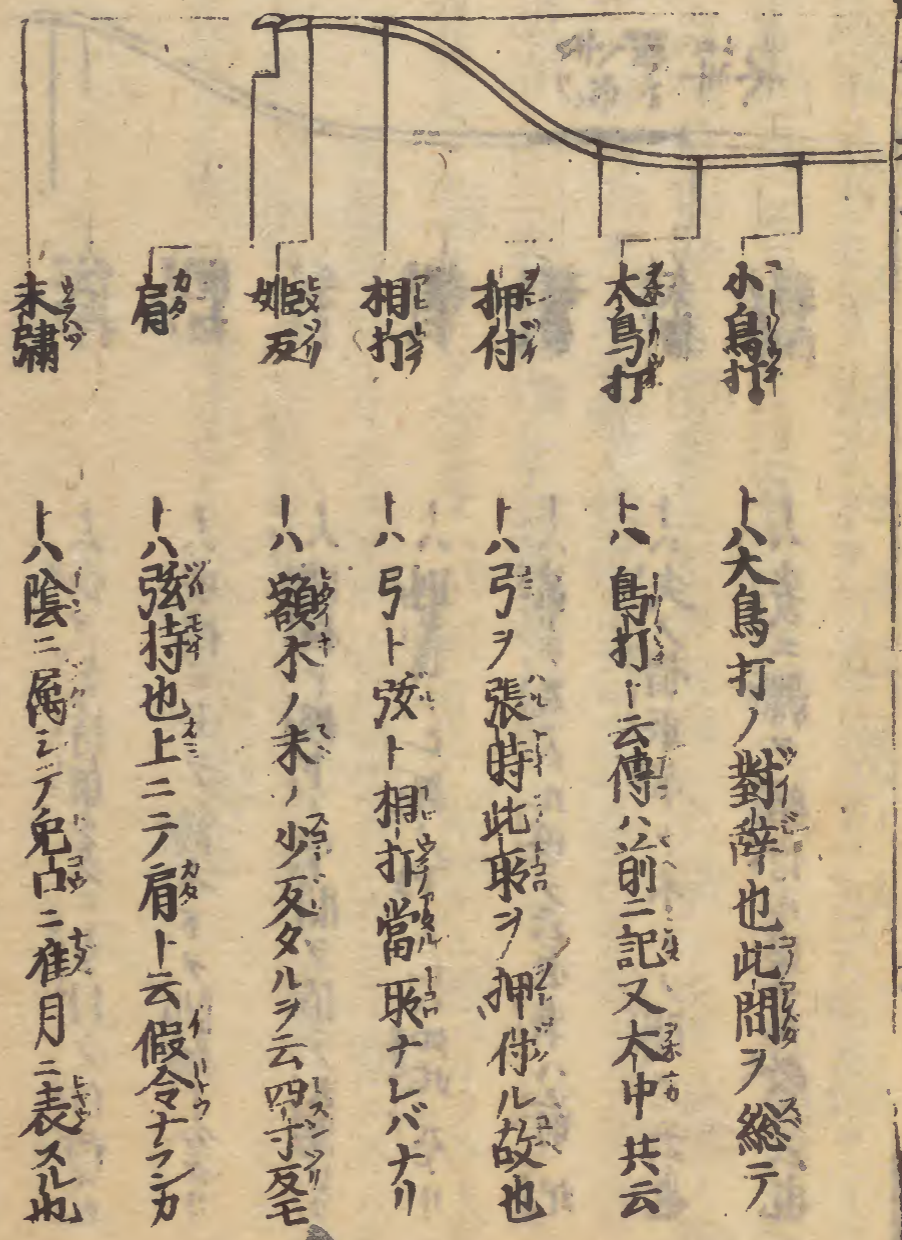 小鳥打 トハ大鳥打ノ對辞也此間ヲ総テ
大鳥打 トハ鳥打ト云傳ハ前ニ記又大中共云
押付 トハ弓ヲ張時此所ヲ押付ル故也
相打 トハ弓ト弦ト相打當所ナレバナリ
姫反 トハ額木ノ末ノ少反タルヲ云四寸反モ
肩 トハ弦持也上ニテ肩ト云假令ナランカ
末彇 トハ陰ニ属シテ兎口ニ准月ニ表スル也